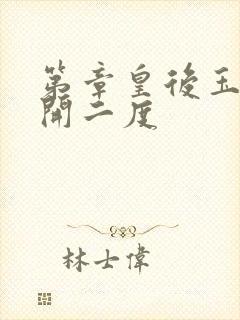 第章皇後玉
開二度
林士偉